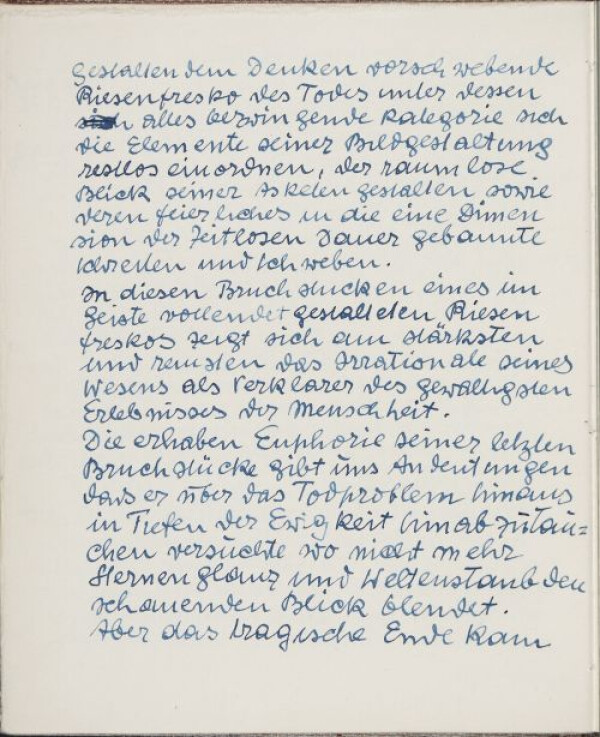 gestaltendem Denken vorschwebende
Riesenfresko des Todes unter dessen
alles bezwingende Kategorie sich
die Elemente seiner Bildgestaltung
restlos einordnen, der raumlose
Blick seiner Asketengestalten sowie
deren feierliches in die eine Dimen
sion der Zeitlosen Dauer gebannte
Schreiten und Schweben.
In diesen Bruchstücken eines im
Geiste vollendet gestalteten Riesen
freskos zeigt sich am stärksten
und reinsten das Irrationale seines
Wesens als Verklärer des gewaltigsten
Erlebnisses der Menschheit.
Die erhaben Euphorie seiner letzten
Bruchstücke gibt uns Andeutungen
dass er über das Todproblem hinaus
in Tiefen der Ewigkeit hinabzutau=
chen versuchte wo nicht mehr
Sternenglanz und Weltenstaub den
schauenden Blick blendet.
Aber das tragische Ende kam